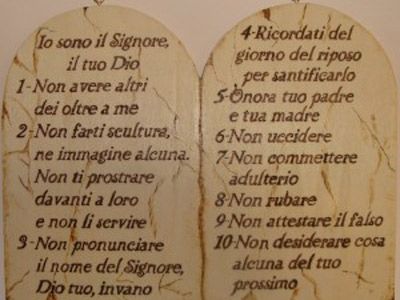 Io sono il Signore,
il tuo Dio
1-Non avere altri
dei oltre a me
2-Non farti scultura,
ne immagine alcuna.
Non ti prostrare
davanti a loro
e non li servire
3-Non pronunciare
il nome del Signore,
Dio tuo, invano
4-Ricordati del
giorno del riposo
per santificarlo
5-Onora tuo padre
e tua madre
6-Non uccidere
7-Non commettere
adulterio
8-Non rubare
9-Non attestare il falso
10-Non desiderare cosa
alcuna del tuo
prossimo